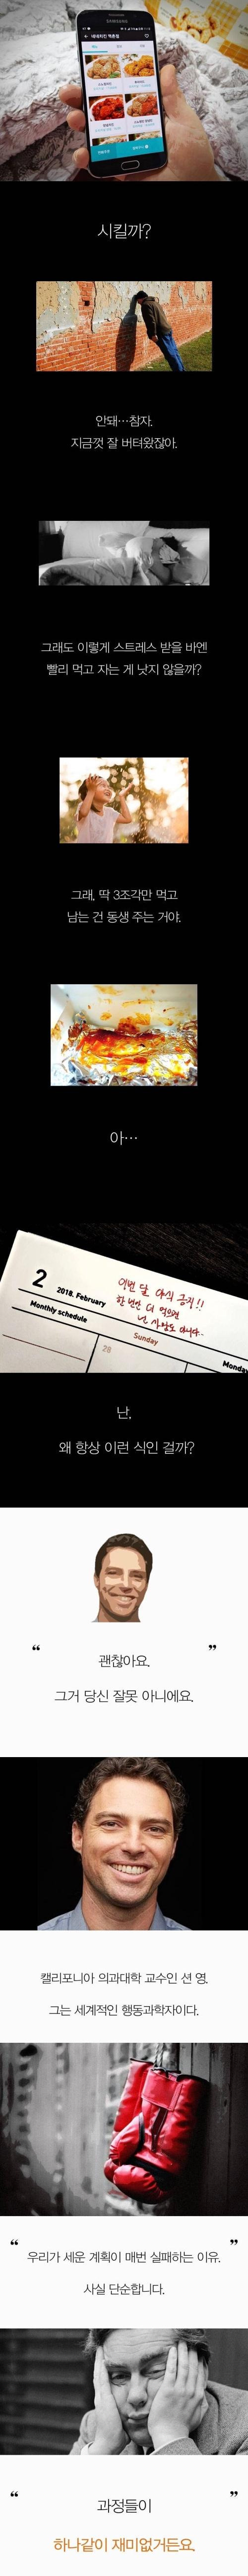 SAMSUNG
시킬까?
안돼…참자.
지금껏 잘 버텨왔잖아.
그래도 이렇게 스트레스 받을 바엔
빨리 먹고 자는 게 낫지 않을까?
그래, 딱 3조각만 먹고
남는 건 동생 주는 거야.
아…
2
2018. February
Monthly schedule
이번 달 야식 금지!!
한 번만 더 먹으면
난 사람도 아니다..
Sunday
28
Monday
난,
왜 항상 이런 식인 걸까?
“ ”
괜찮아요.
그거 당신 잘못 아니에요.
캘리포니아 의과대학 교수인 션 영.
그는 세계적인 행동과학자이다.
“ ”
우리가 세운 계획이 매번 실패하는 이유.
사실 단순합니다.
“ ”
과정들이
하나같이 재미없거든요.